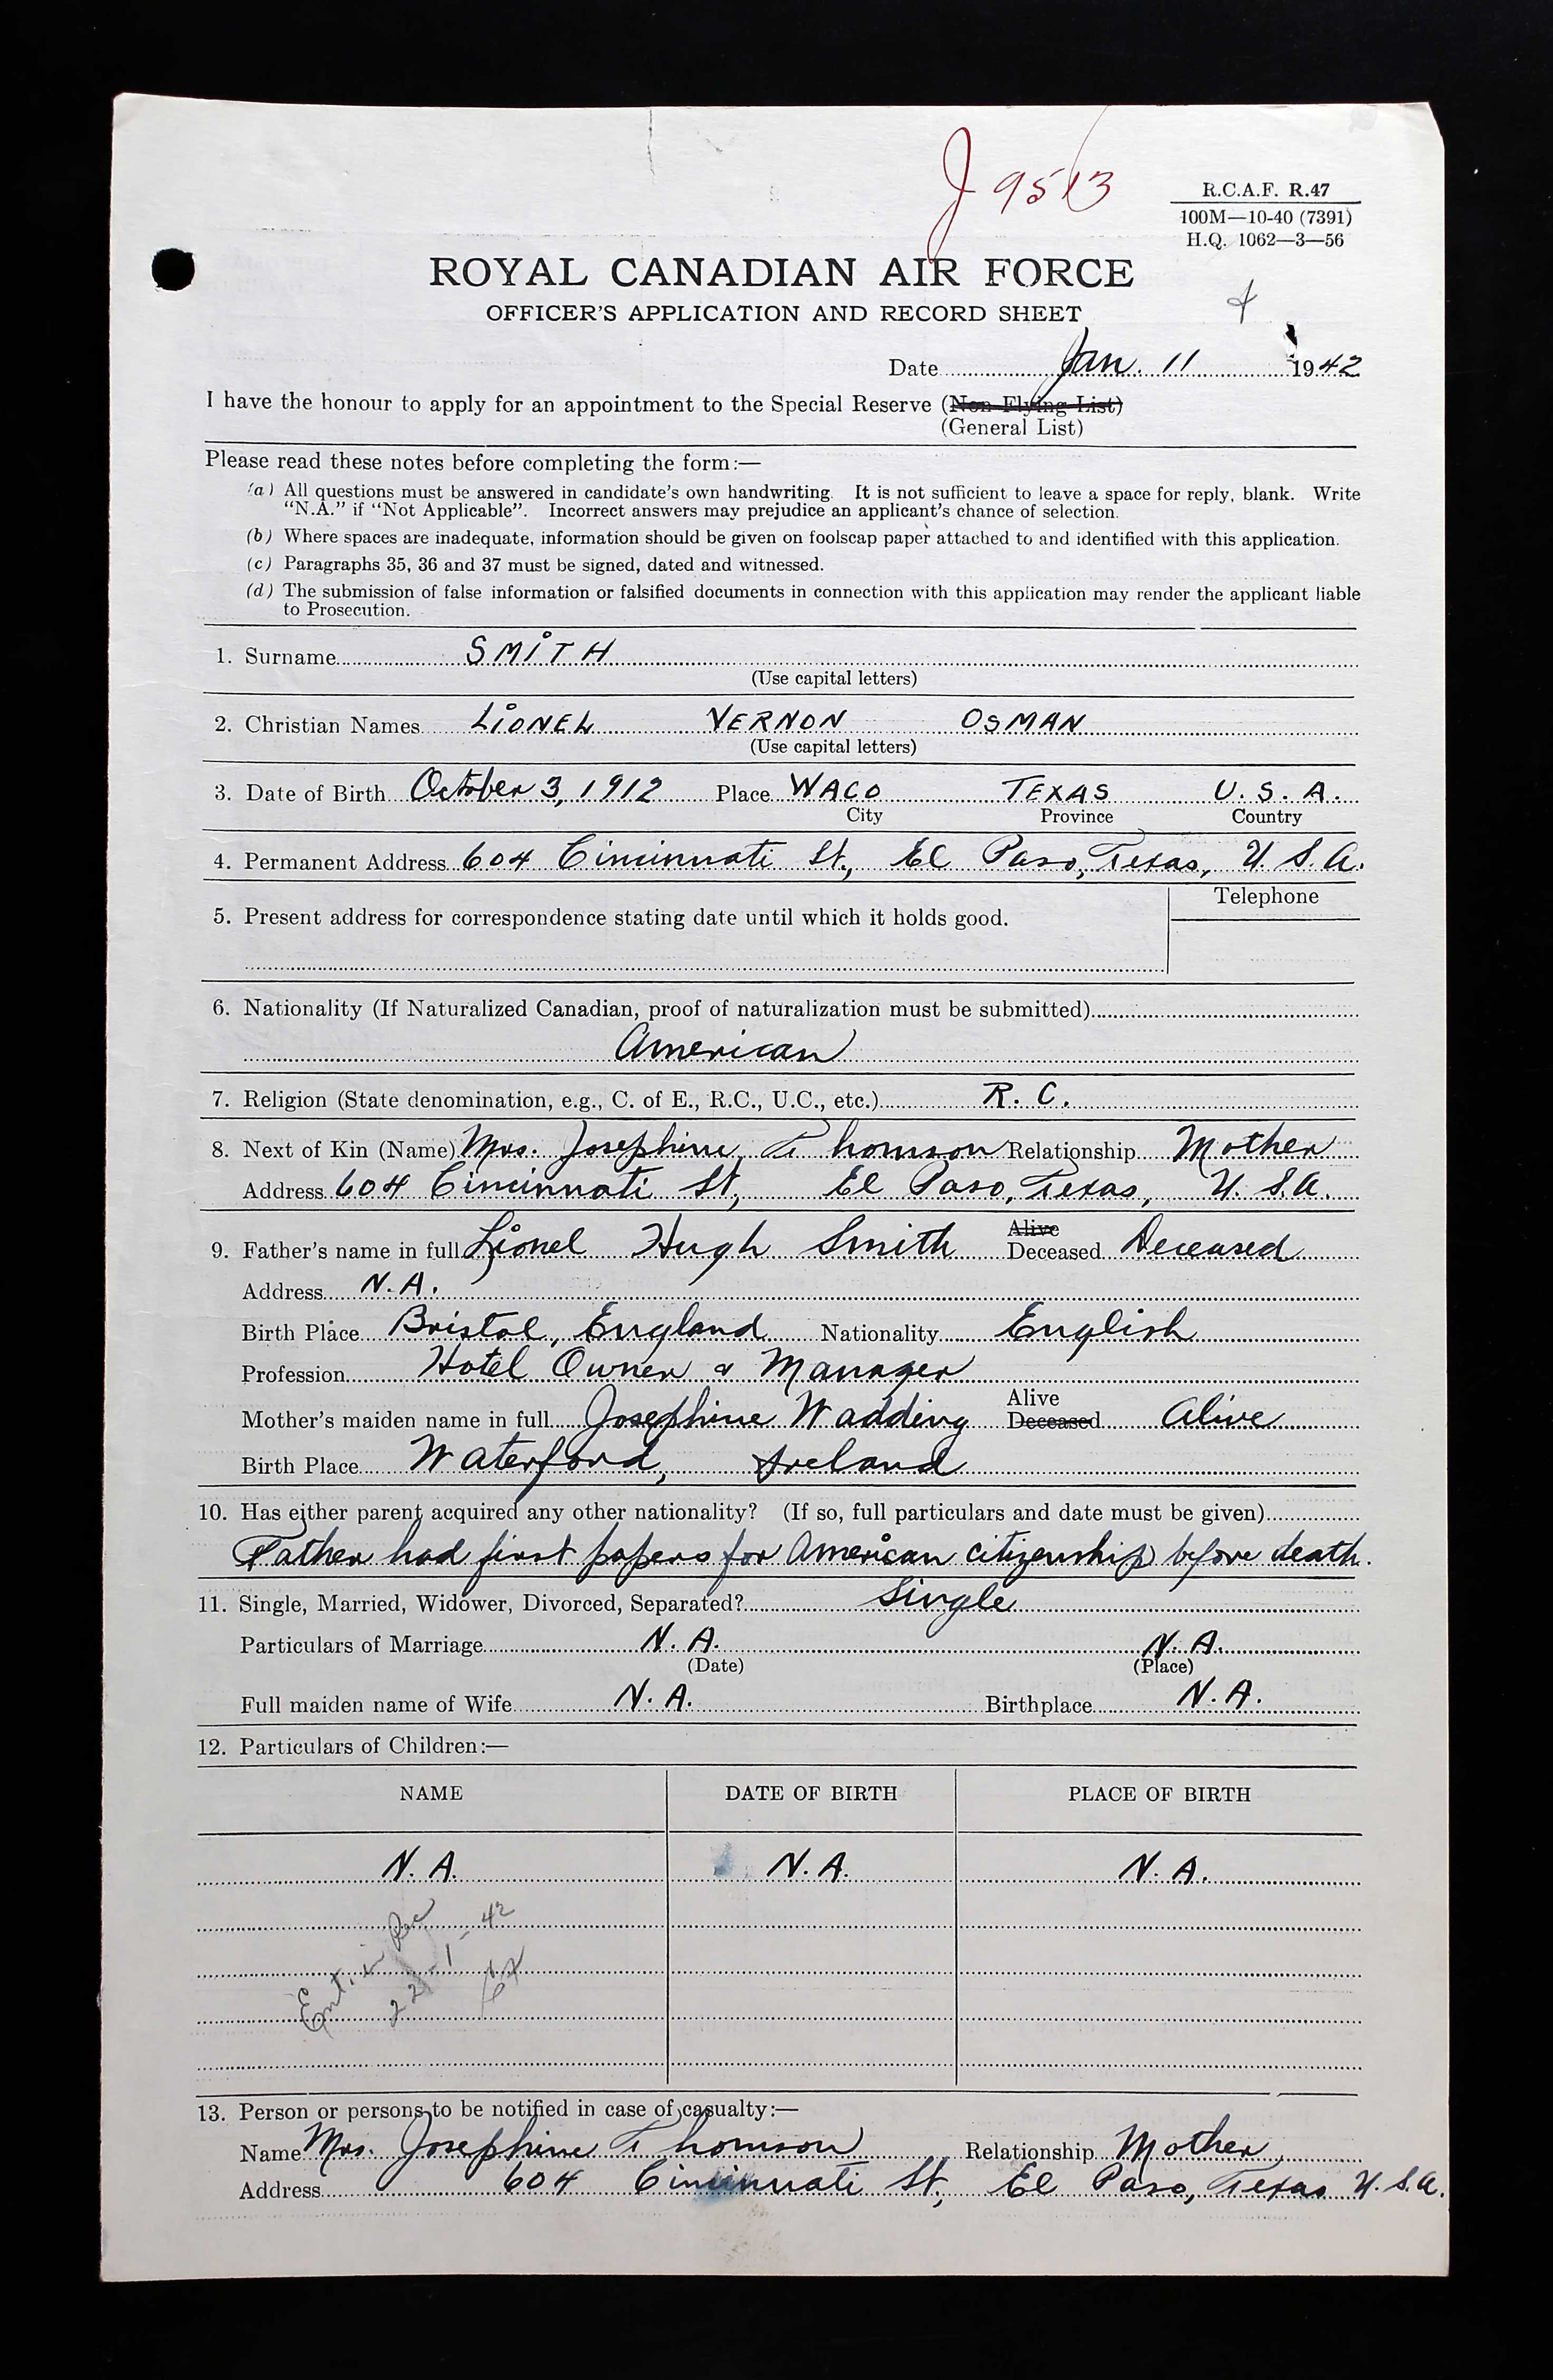 J 9513
R.C.A.F. R.47
100M—10-40 (7391)
H.Q. 1062—3—56
ROYAL CANADIAN AIR FORCE
OFFICER'S APPLICATION AND RECORD SHEET
Date Jan. 11 1942
I have the honour to apply for an appointment to the Special Reserve (Non-Flying List)
(General List)
Please read these notes before completing the form:—
(a) All questions must be answered in candidate's own handwriting. It is not sufficient to leave a space for reply, blank. Write
"N.A." if "Not Applicable". Incorrect answers may prejudice an applicant's chance of selection.
(b) Where spaces are inadequate, information should be given on foolscap paper attached to and identified with this application.
(c) Paragraphs 35, 36 and 37 must be signed, dated and witnessed.
(d) The submission of false information or falsified documents in connection with this application may render the applicant liable
to Prosecution.
1. Surname SMITH
(Use capital letters)
2. Christian Names LIONEL VERNON OSMAN
(Use capital letters)
3. Date of Birth October 3, 1912 Place WACO TEXAS U.S.A.
City Province Country
4. Permanent Address 604 Cincinnati St., El Paso, Texas, U.S.A.
Telephone
5. Present address for correspondence stating date until which it holds good.
6. Nationality (If Naturalized Canadian, proof of naturalization must be submitted)
American
7. Religion (State denomination, e.g., C. of E., R.C., U.C., etc.) R. C.
8. Next of Kin (Name) Mrs. Josephine Thomson Relationship Mother
Address 604 Cincinnati St, El Paso, Texas, U.S.A.
9. Father's name in full Lionel Hugh Smith Alive Deceased Deceased
Address N.A.
Birth Place Bristol, England Nationality English
Profession Hotel Owner & Manager
Mother's maiden name in full Josephine Wadding Alive Deceased Alive
Birth Place Waterford, Ireland
10. Has either parent acquired any other nationality? (If so, full particulars and date must be given)
Father had first papers for American citizenship before death.
11. Single, Married, Widower, Divorced, Separated? Single
Particulars of Marriage N.A. N.A.
(Date) (Place)
Full maiden name of Wife N.A. Birthplace N.A.
12. Particulars of Children:—
NAME DATE OF BIRTH PLACE OF BIRTH
N.A. N.A. N.A.
Ent. in Rec
22-1-42
13. Person or persons to be notified in case of casualty:—
Name Mrs. Josephine Thomson Relationship Mother
Address 604 Cincinnati St, El Paso, Texas U.S.A.